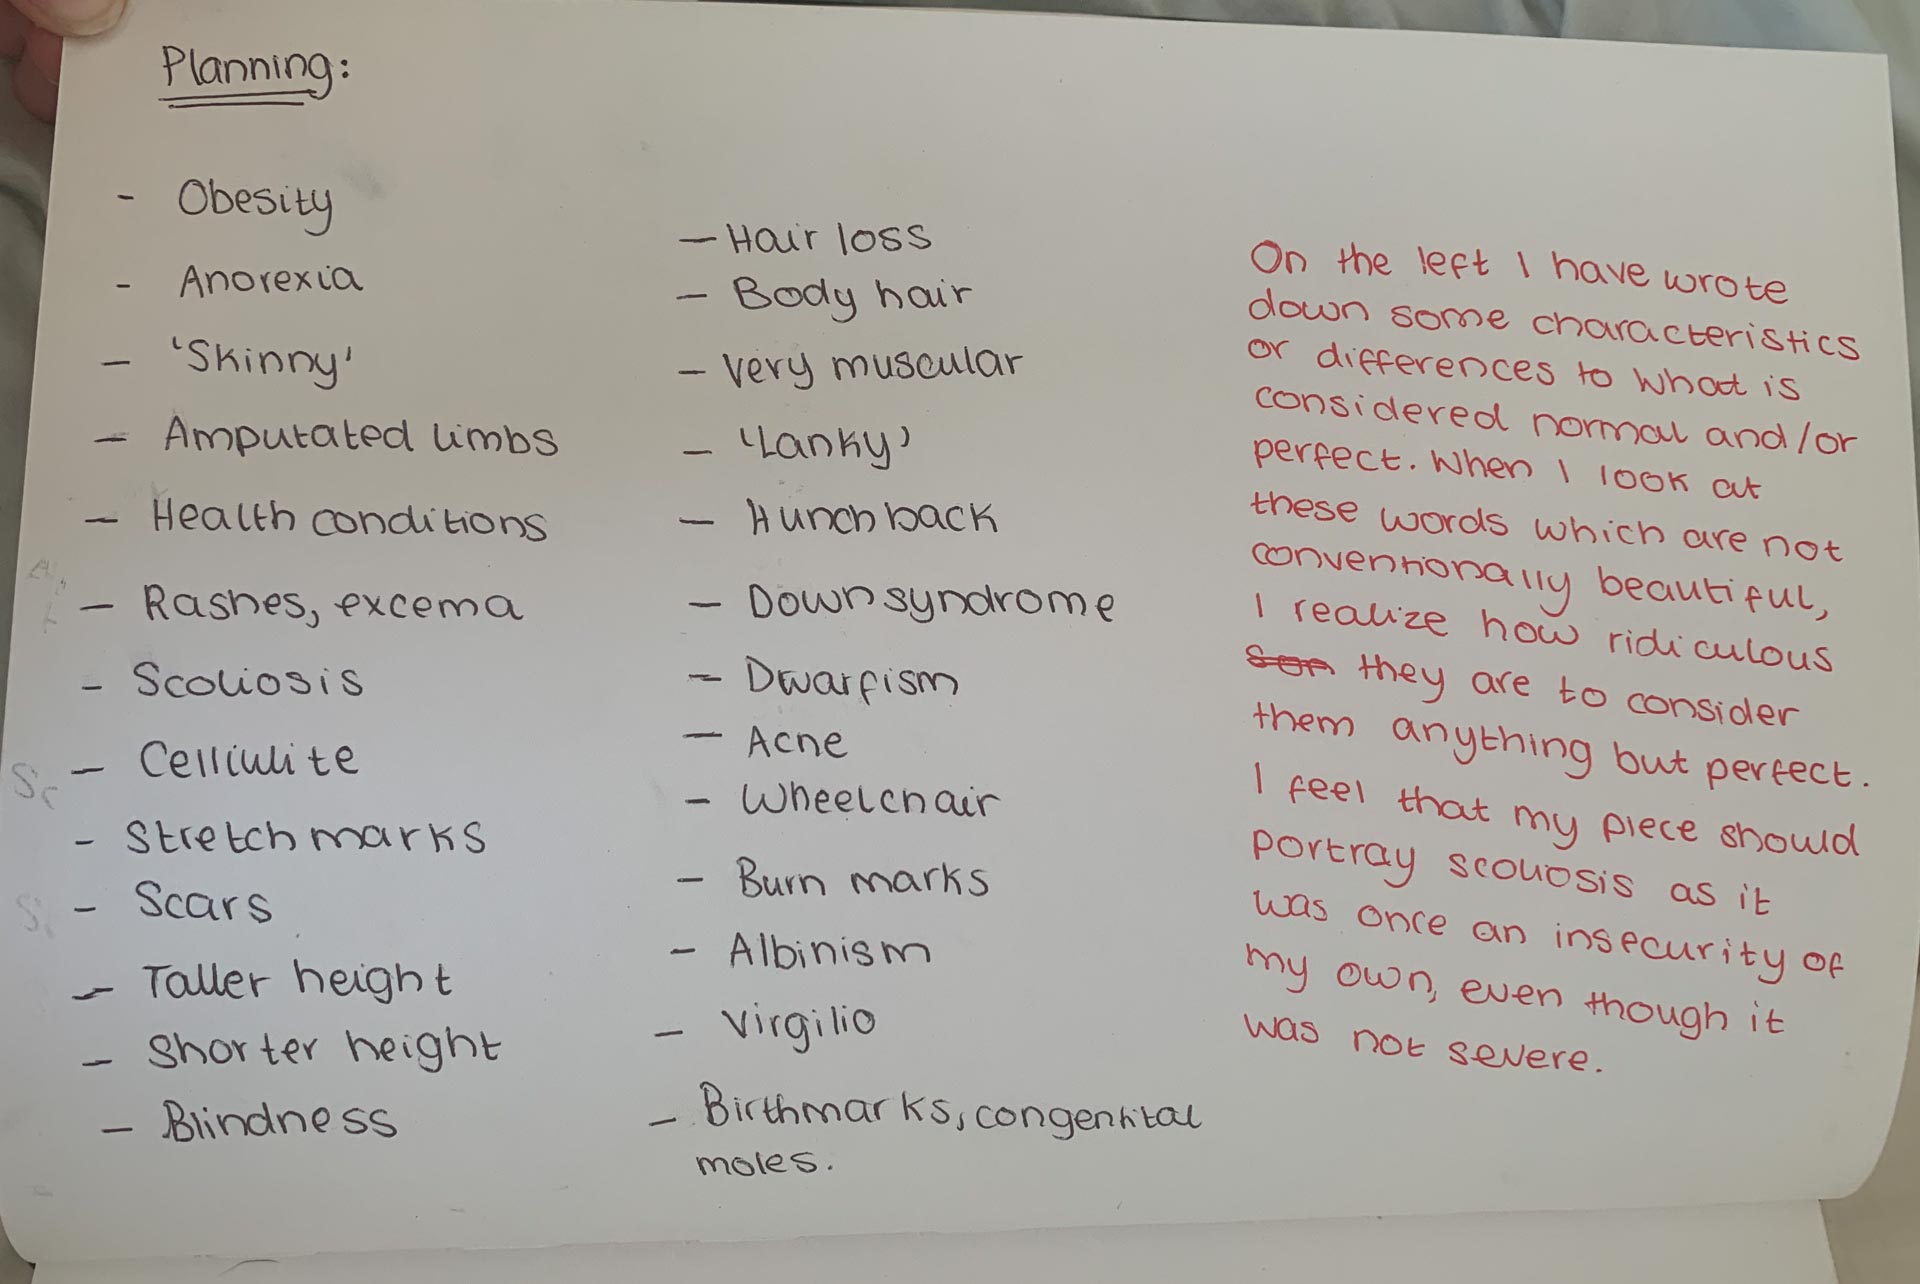 Planning:
- Obesity
- Anorexia
- 'Skinny'
- Amputated limbs
- Health conditions
- Rashes, excema
- Scoliosis
- Celliulite
- Stretch marks
- Scars
- Taller height
- Shorter height
- Blindness
- Hair loss
- Body hair
- Very muscular
- 'Lanky'
- Hunchback
- Downsyndrome
- Dwarfism
- Acne
- Wheelchair
- Burn marks
- Albinism
- Virgilio
- Birthmarks, congenital
moles.
On the left I have wrote
down some characteristics
or differences to what is
considered normal and/or
perfect. When I look at
these words which are not
conventionally beautiful,
I realize how ridiculous
they are to consider
them anything but perfect.
I feel that my piece should
portray scoliosis as it
was once an insecurity of
my own, even though it
was not severe.